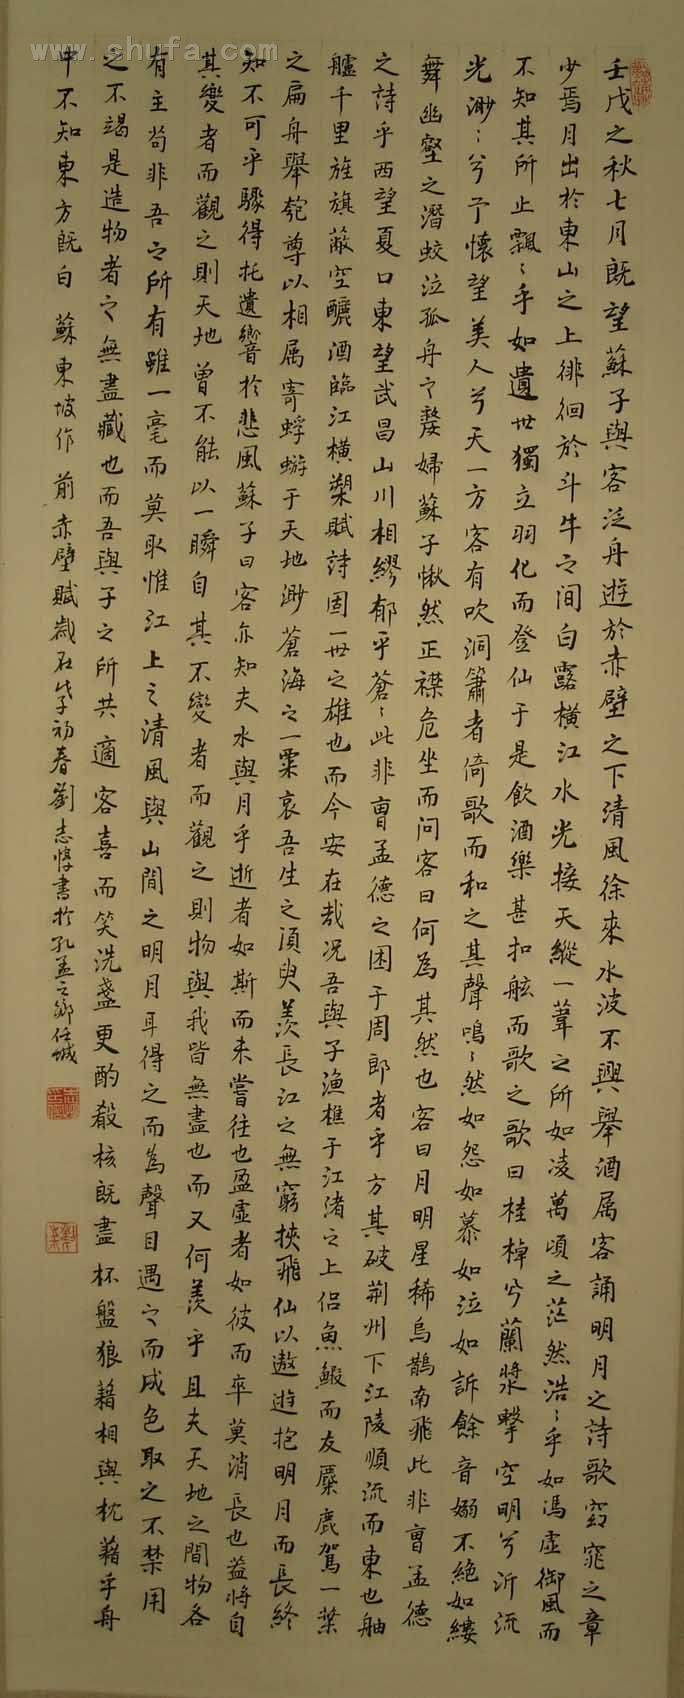 www.chufa.com
壬戌之秋七月既望蘇子與客泛舟遊於赤壁之下清風徐來水波不興舉酒属客誦明月之詩歌窈窕之章
少焉月出於東山之上徘徊於斗牛之间白露橫江水光接天縱一葦之所如凌萬頃之茫然浩〻乎如馮虛御風而
不知其所止飄〻乎如遺世獨立羽化而登仙于是飲酒樂甚扣舷而歌之歌曰桂棹兮蘭漿擊空明兮泝流
光渺〻兮予懷望美人兮天一方客有吹洞簫者倚歌而和之其聲嗚〻然如怨如慕如泣如訴餘音嫋不絶如縷
舞幽壑之潛蛟泣孤舟之嫠婦蘇子愀然正襟危坐而问客曰何為其然也客曰月明星稀烏鵲南飛此非曹孟德
之詩乎西望夏口東望武昌山川相繆郁乎蒼〻此非曹孟德之困于周郎者乎方其破荆州下江陵順流而東也舳
艫千里旌旗蔽空釃酒臨江橫槊賦詩固一世之雄也而今安在哉况吾與子漁樵于江渚之上侣魚鰕而友麋鹿駕一葉
之扁舟舉匏尊以相属寄蜉蝣于天地渺蒼海之一粟哀吾生之湏臾羨長江之無窮挾飛仙以遨遊抱明月而長終
知不可乎驟得托遺響於悲風蘇子曰客亦知夫水與月乎逝者如斯而未嘗往也盈虛者如彼而卒莫消長也盖將自
其變者而觀之則天地曾不能以一瞬自其不變者而觀之則物與我皆無盡也而又何羨乎且夫天地之間物各
有主苟非吾之所有雖一毫而莫取惟江上之清風與山間之明月耳得之而為聲目遇之而成色取之不禁用
之不竭是造物者之無盡藏也而吾與子之所共適客喜而笑洗盞更酌殽核既盡杯盤狼藉相與枕藉乎舟
中不知東方既白 蘇東坡作 前赤壁賦歲在戊子初春劉志惇書於孔孟之鄉任城